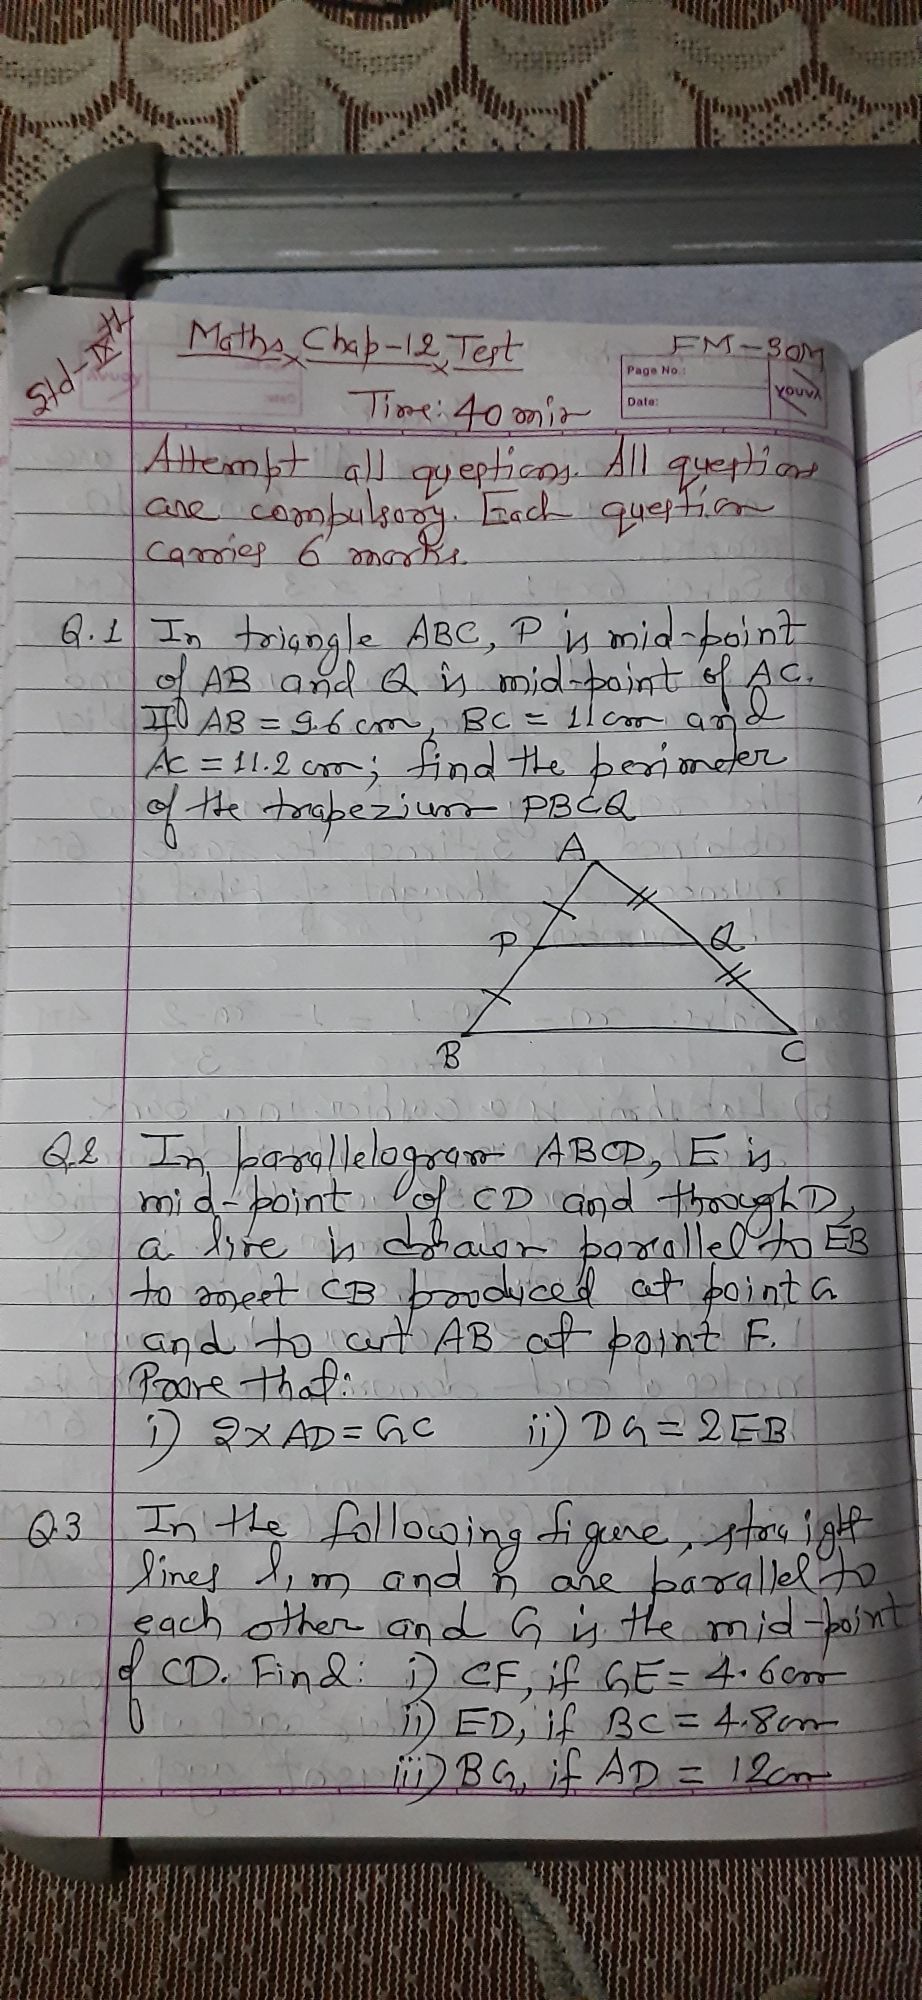 Std-IXth
Maths Chap-12 Test FM-30M
Page No.:
Date:
YOUVA
Time: 40 min
Attempt all questions. All questions
are compulsory. Each question
carries 6 marks.
Q.1 In triangle ABC, P is mid-point
of AB and Q is mid-point of AC.
If AB = 9.6 cm, BC = 11 cm and
AC = 11.2 cm; find the perimeter
of the trapezium PBCQ
A
P Q
B C
Q.2 In parallelogram ABCD, E is
mid-point of CD and through D,
a line is drawn parallel to EB
to meet CB produced at point G
and to cut AB at point F.
Prove that:
i) 2 x AD = GC ii) DG = 2EB
Q.3 In the following figure, straight
lines l, m and n are parallel to
each other and G is the mid-point
of CD. Find: i) CF, if GE = 4.6cm
ii) ED, if BC = 4.8cm
iii) BG, if AD = 12cm